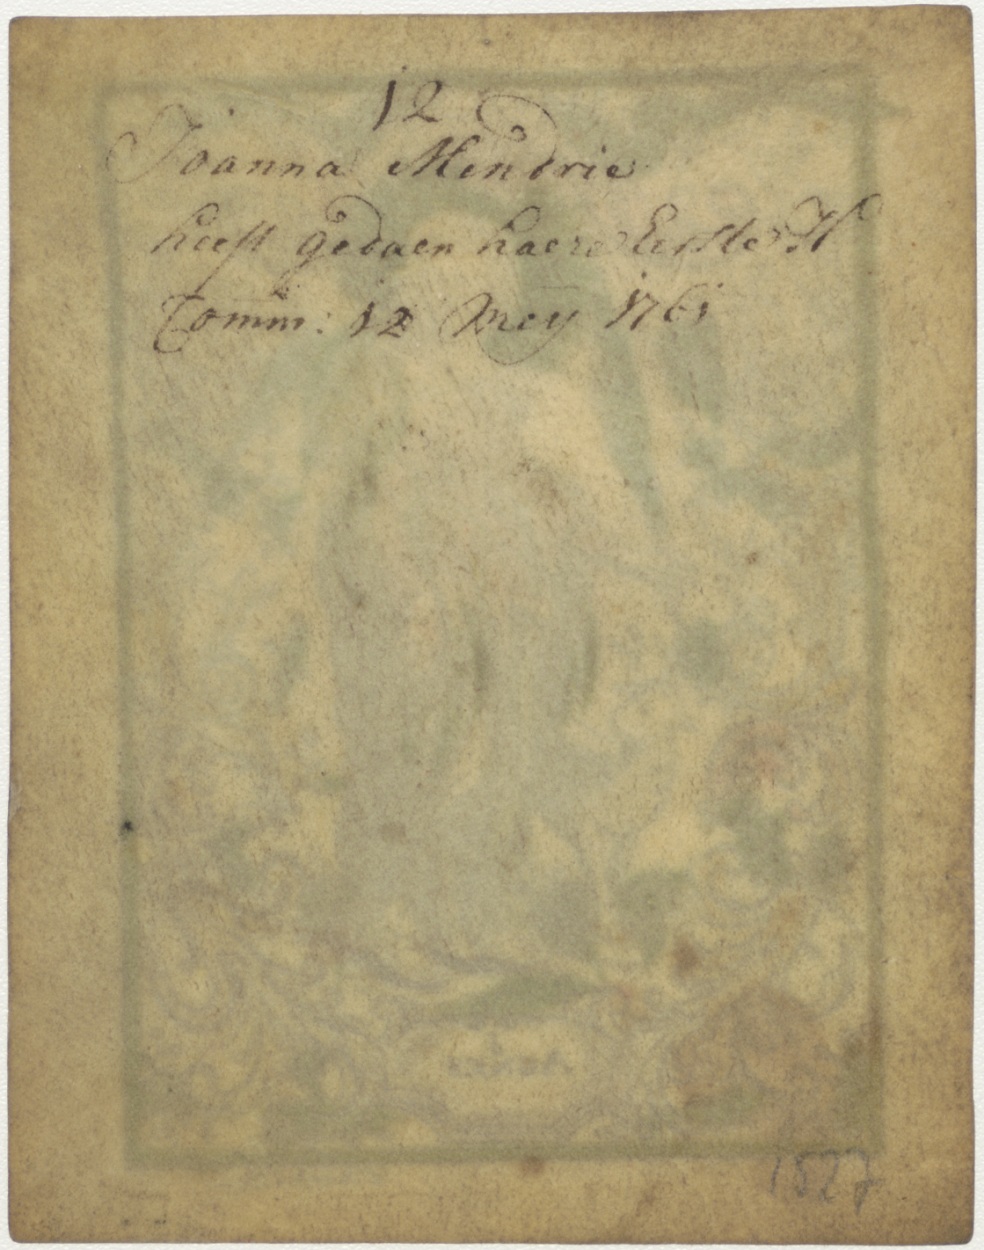 12
Joanna Mendrie
heeft gedaen haere Eerste H
Comm: 12 Meÿ 1761
1527